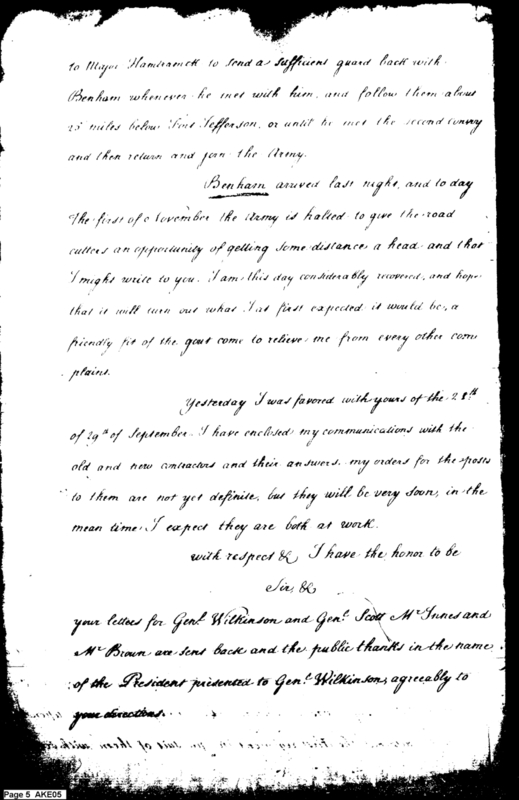 to Major Hamtramck to send a sufficient guard back with
Benham whenever he met with him, and follow them about
25 miles below Fort Jefferson, or until he met the second convoy
and then return and join the Army.
Benham arrived last night, and to day
the first of November the Army is halted to give the road
cutters an opportunity of getting some distance a head and that
I might write to you. I am this day considerably recovered, and hope
that it will turn out what I at first expected it would be, a
friendly fit of the gout come to relieve me from every other com
plaint.
Yesterday I was favored with yours of the 28th
of 29th of September. I have enclosed my communications with the
old and new contractors and their answers. my orders for the posts
to them are not yet definite, but they will be very soon, in the
mean time I expect they are both at work.
with respect &c I have the honor to be
Sir, &c
your letters for Genl. Wilkinson and Genl. Scott Mr Innes and
Mr Brown are sent back and the public thanks in the name
of the President presented to Genl. Wilkinson, agreeably to
your directions.
Page 5 AKE05